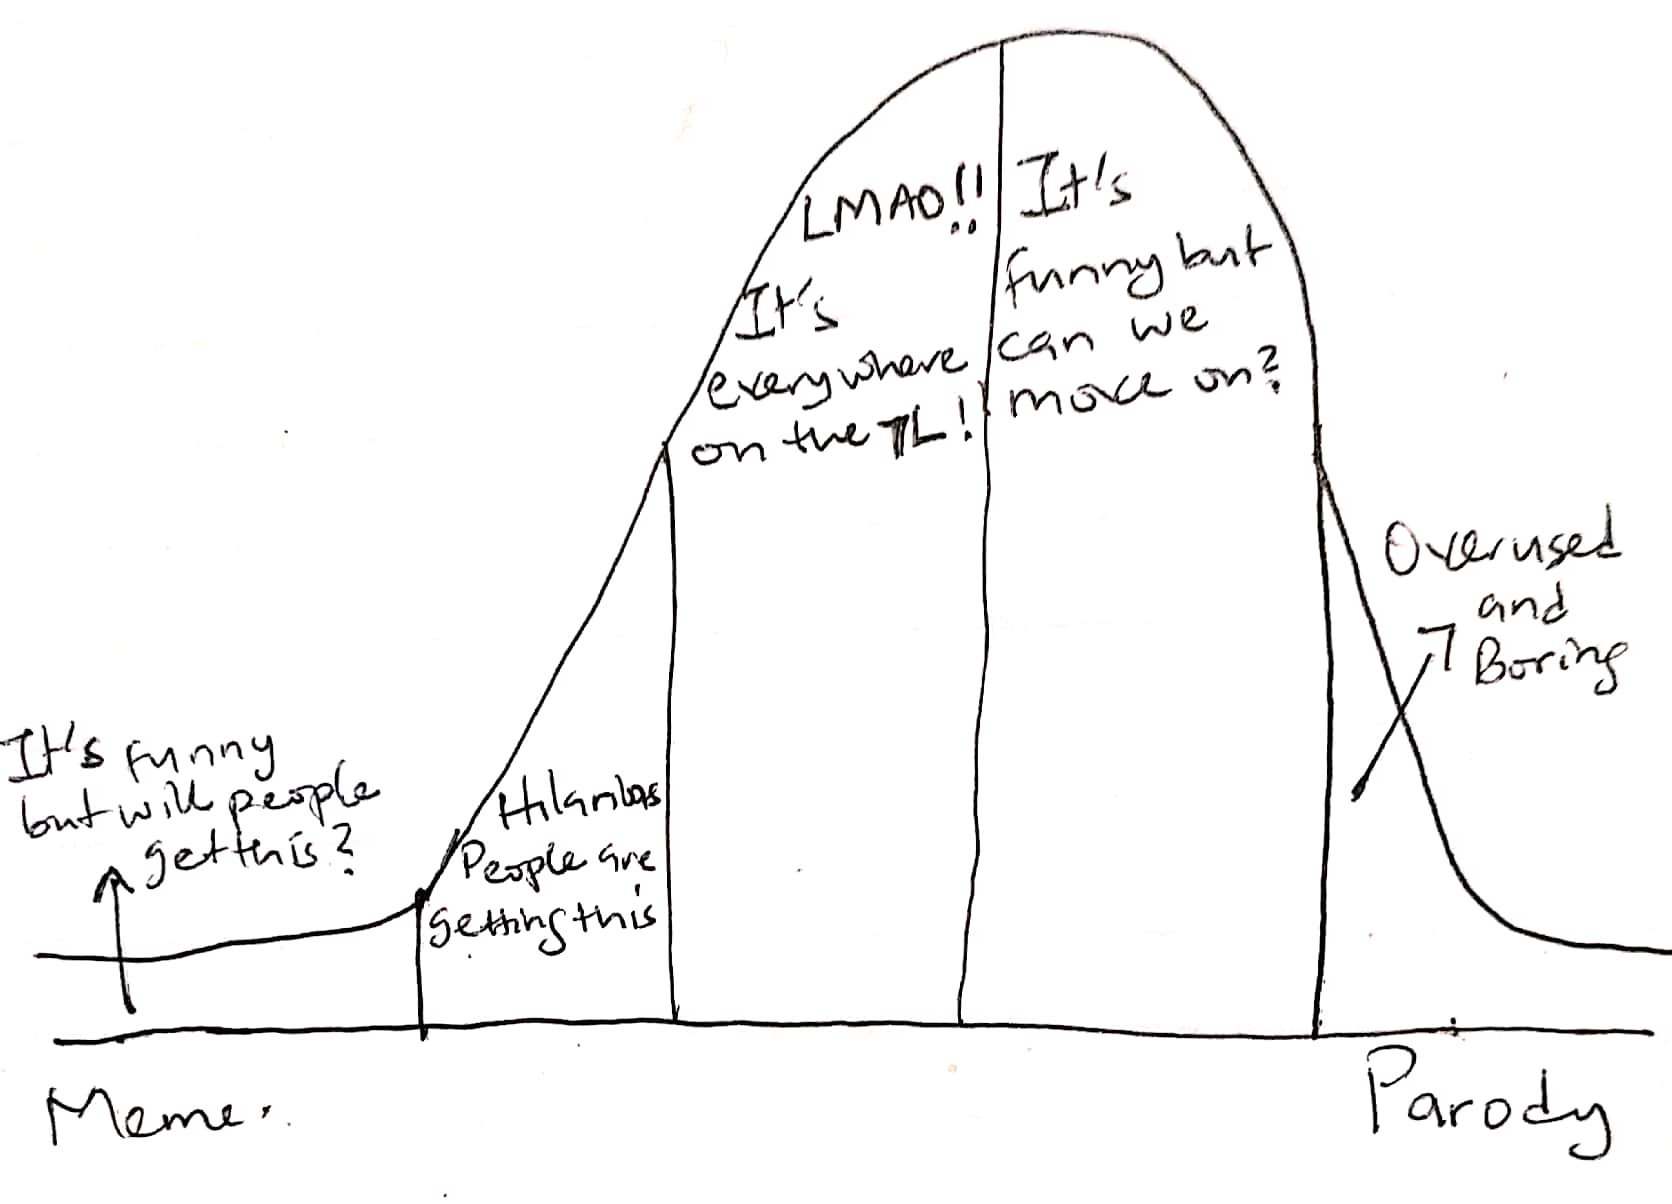 LMAO!!
It's
everywhere
on the TL!
It's
funny but
can we
move on?
Overused
and
Boring
It's funny
but will people
get this?
Hilarious
People are
getting this
Meme.
Parody